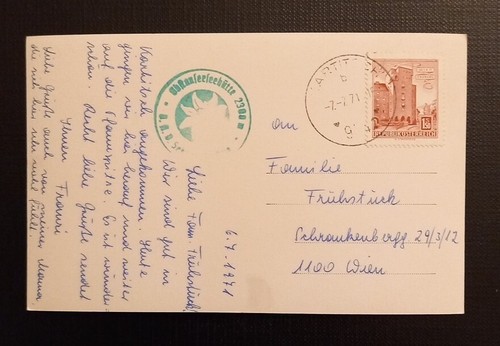 6.7.1971
Liebe Fam. Frühstück!
Wir sind gut in
Kartitsch angekommen. Heute
gingen wir hier herauf und weiter
auf die Pfannspitze. Es ist wunder-
schön. Recht liebe Grüße sendet
Ihnen
Liebe Grüße auch von meiner Mama
die sich hier sehr wohl fühlt.
Obstansterseehütte 2300 m
KARTITSCH
b
-7.-7.71
REPUBLIK ÖSTERREICH
an
Familie
Frühstück
Schrankenbergg. 29/3/12
1100 Wien